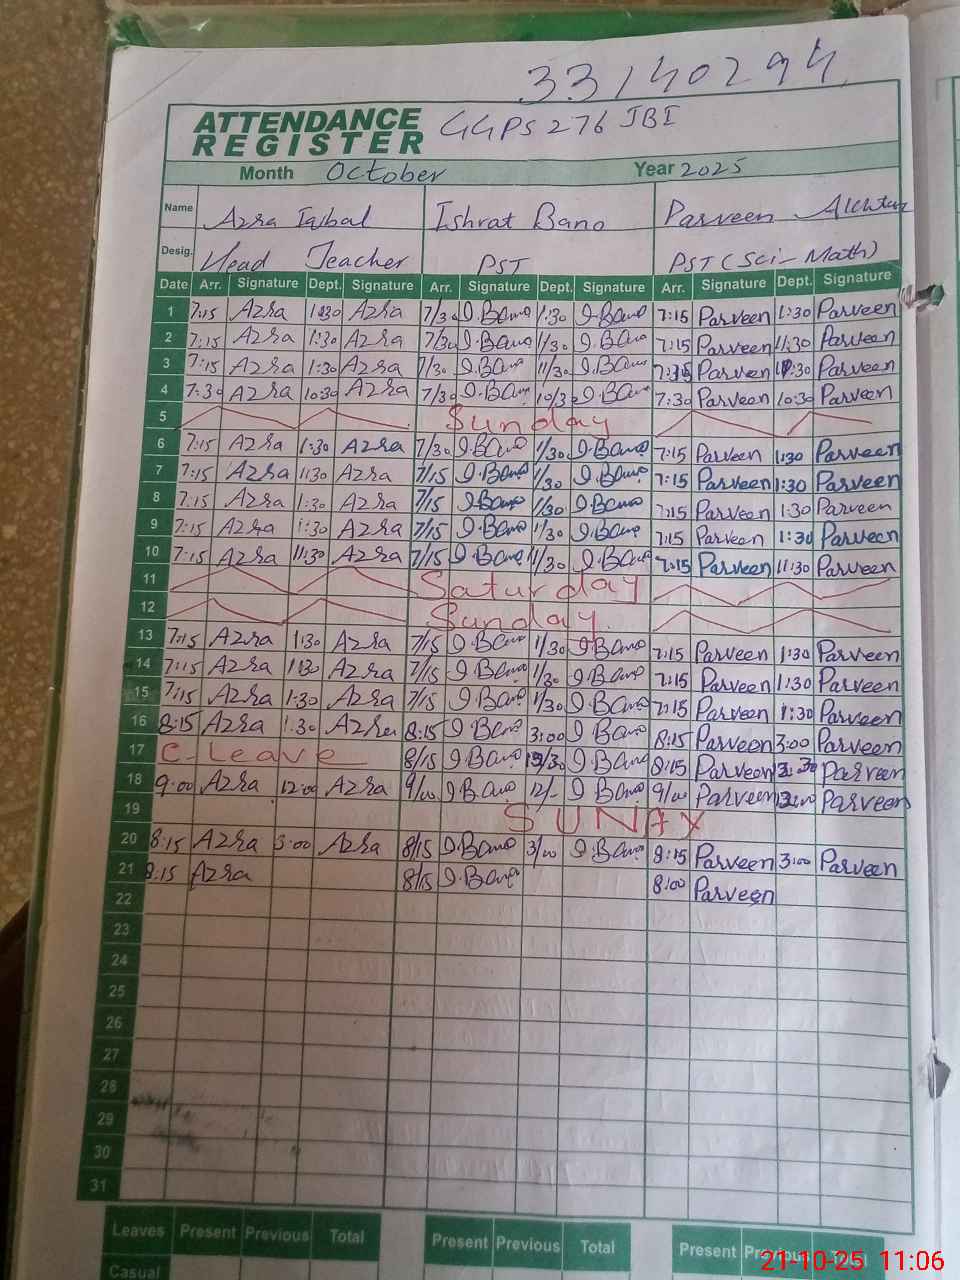 33140294
ATTENDANCE REGISTER GGPS 276 JBI
Month October Year 2025
Name Azra Iqbal Ishrat Bano Parveen Akhtar
Desig. Head Teacher PST PST (Sci-Math)
Date Arr. Signature Dept. Signature Arr. Signature Dept. Signature Arr. Signature Dept. Signature
1 7:15 Azra 1:30 Azra 7/30 I.Bano 1/30 I.Bano 7:15 Parveen 1:30 Parveen
2 7:15 Azra 1:30 Azra 7/30 I.Bano 1/30 I.Bano 7:15 Parveen 11:30 Parveen
3 7:15 Azra 1:30 Azra 7/30 I.Bano 11/30 I.Bano 7:15 Parveen Parveen
4 7:30 Azra 10:30 Azra 7/30 I.Bano 10/30 I.Bano 7:30 Parveen 10:30 Parveen
5 Sunday
6 7:15 Azra 1:30 Azra 7/30 I.Bano 1/30 I.Bano 7:15 Parveen 1:30 Parveen
7 7:15 Azra 11:30 Azra 7/15 I.Bano 1/30 I.Bano 7:15 Parveen 1:30 Parveen
8 7:15 Azra 1:30 Azra 7/15 I.Bano 1/30 I.Bano 7:15 Parveen 1:30 Parveen
9 7:15 Azra 1:30 Azra 7/15 I.Bano 1/30 I.Bano 7:15 Parveen 1:30 Parveen
10 7:15 Azra 11:30 Azra 7/15 I.Bano 11/30 I.Bano 7:15 Parveen 11:30 Parveen
11 Saturday
12 Sunday
13 7:15 Azra 1:30 Azra 7/15 I.Bano 1/30 I.Bano 7:15 Parveen 1:30 Parveen
14 7:15 Azra 1:30 Azra 7/15 I.Bano 1/30 I.Bano 7:15 Parveen 1:30 Parveen
15 7:15 Azra 1:30 Azra 7/15 I.Bano 1/30 I.Bano 7:15 Parveen 1:30 Parveen
16 8:15 Azra 1:30 Azra 8:15 I.Bano 3:00 I.Bano 8:15 Parveen 3:00 Parveen
17 C-Leave 8/15 I.Bano I.Bano 8:15 Parveen Parveen
18 9:00 Azra 12:00 Azra 9/00 I.Bano 12/- I.Bano 9/00 Parveen Parveen
19 SUNAY
20 8:15 Azra 3:00 Azra 8/15 I.Bano 3/00 I.Bano 8:15 Parveen 3:00 Parveen
21 8:15 Azra 8/15 I.Bano 8:00 Parveen
22
23
24
25
26
27
28
29
30
31
Leaves Present Previous Total Present Previous Total Present Previous
Casual
21-10-25 11:06